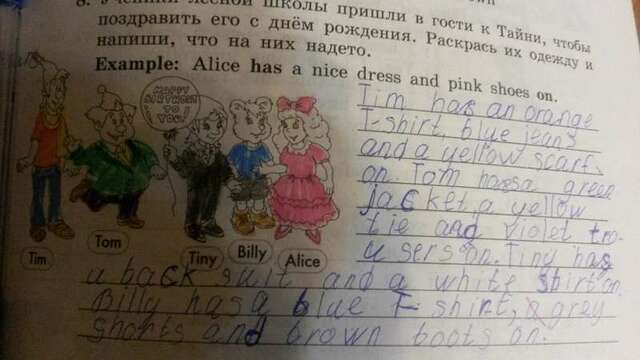 8. Ученики лесной школы пришли в гости к Тайни, чтобы
поздравить его с днём рождения. Раскрась их одежду и
напиши, что на них надето.
Example: Alice has a nice dress and pink shoes on.
HAPPY
BIRTHDAY
TO
YOU!
Tim
Tom
Tiny
Billy
Alice
Tim has an orange
T-shirt, blue jeans
and a yellow scarf
on. Tom has a green
jacket, a yellow
tie and violet tro-
users on. Tiny has
a back suit and a white shirt on.
Billy has a blue T-shirt, a grey
shorts and brown boots on.